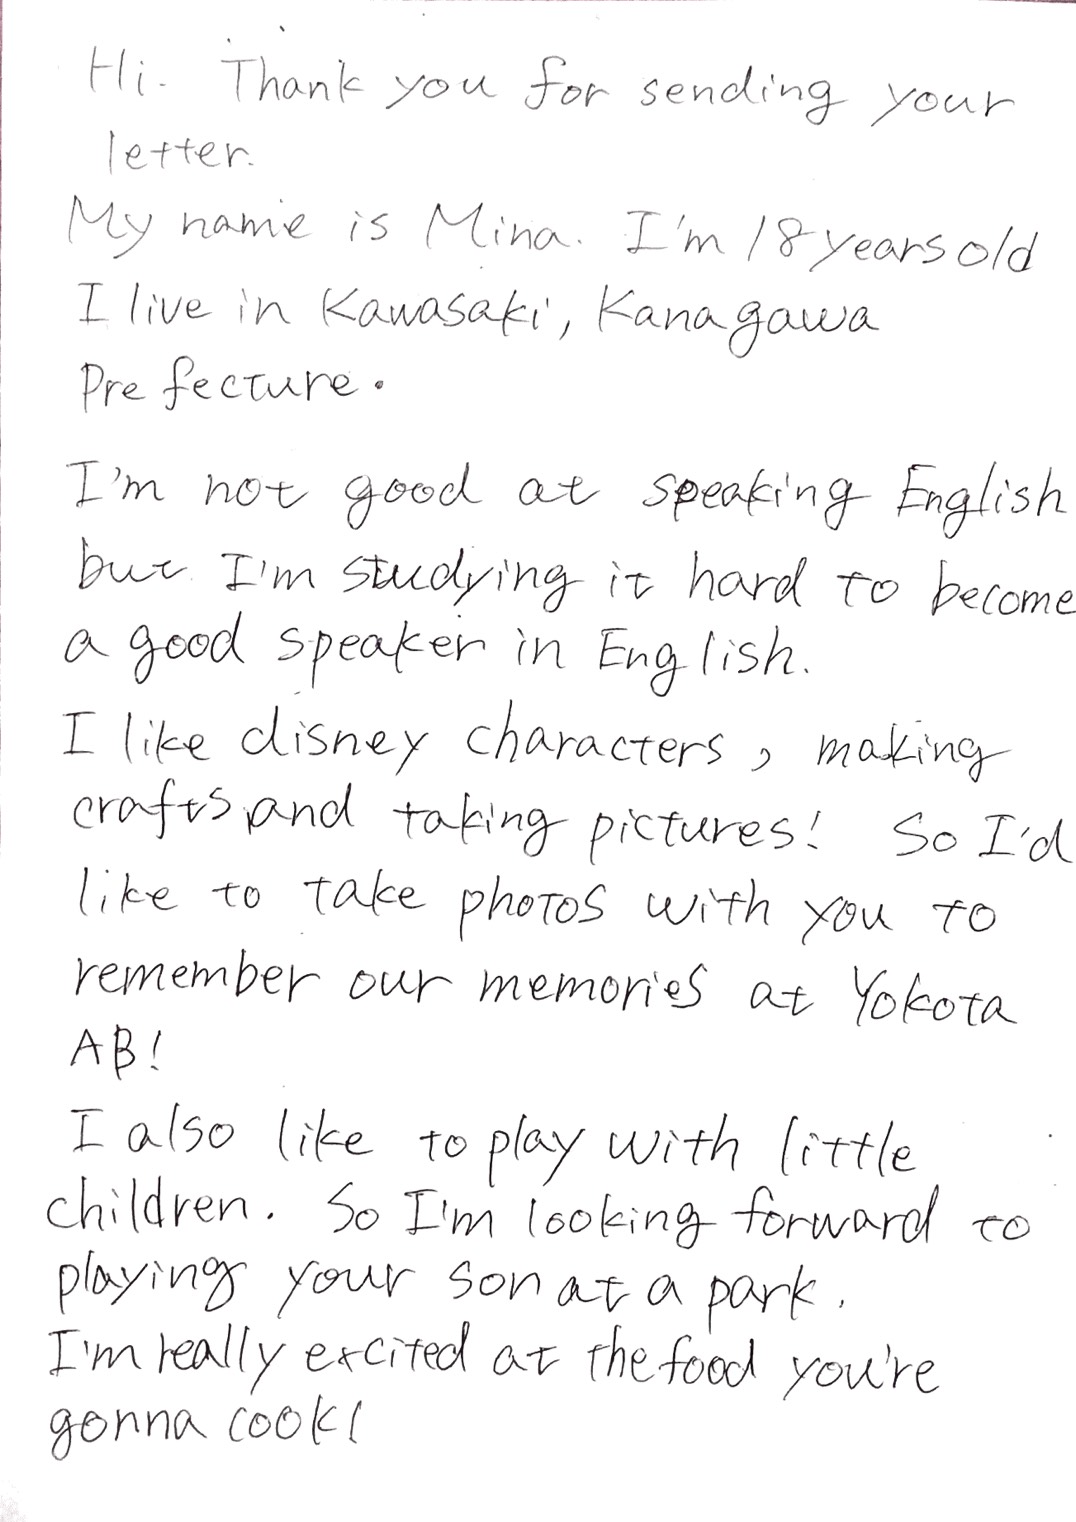 Hi. Thank you for sending your
letter.
My name is Mina. I'm 18 years old
I live in Kawasaki, Kanagawa
Prefecture.
I'm not good at speaking English
but I'm studying it hard to become
a good speaker in English.
I like disney characters, making
crafts and taking pictures! So I'd
like to take photos with you to
remember our memories at Yokota
AB!
I also like to play with little
children. So I'm looking forward to
playing your son at a park.
I'm really excited at the food you're
gonna cook!